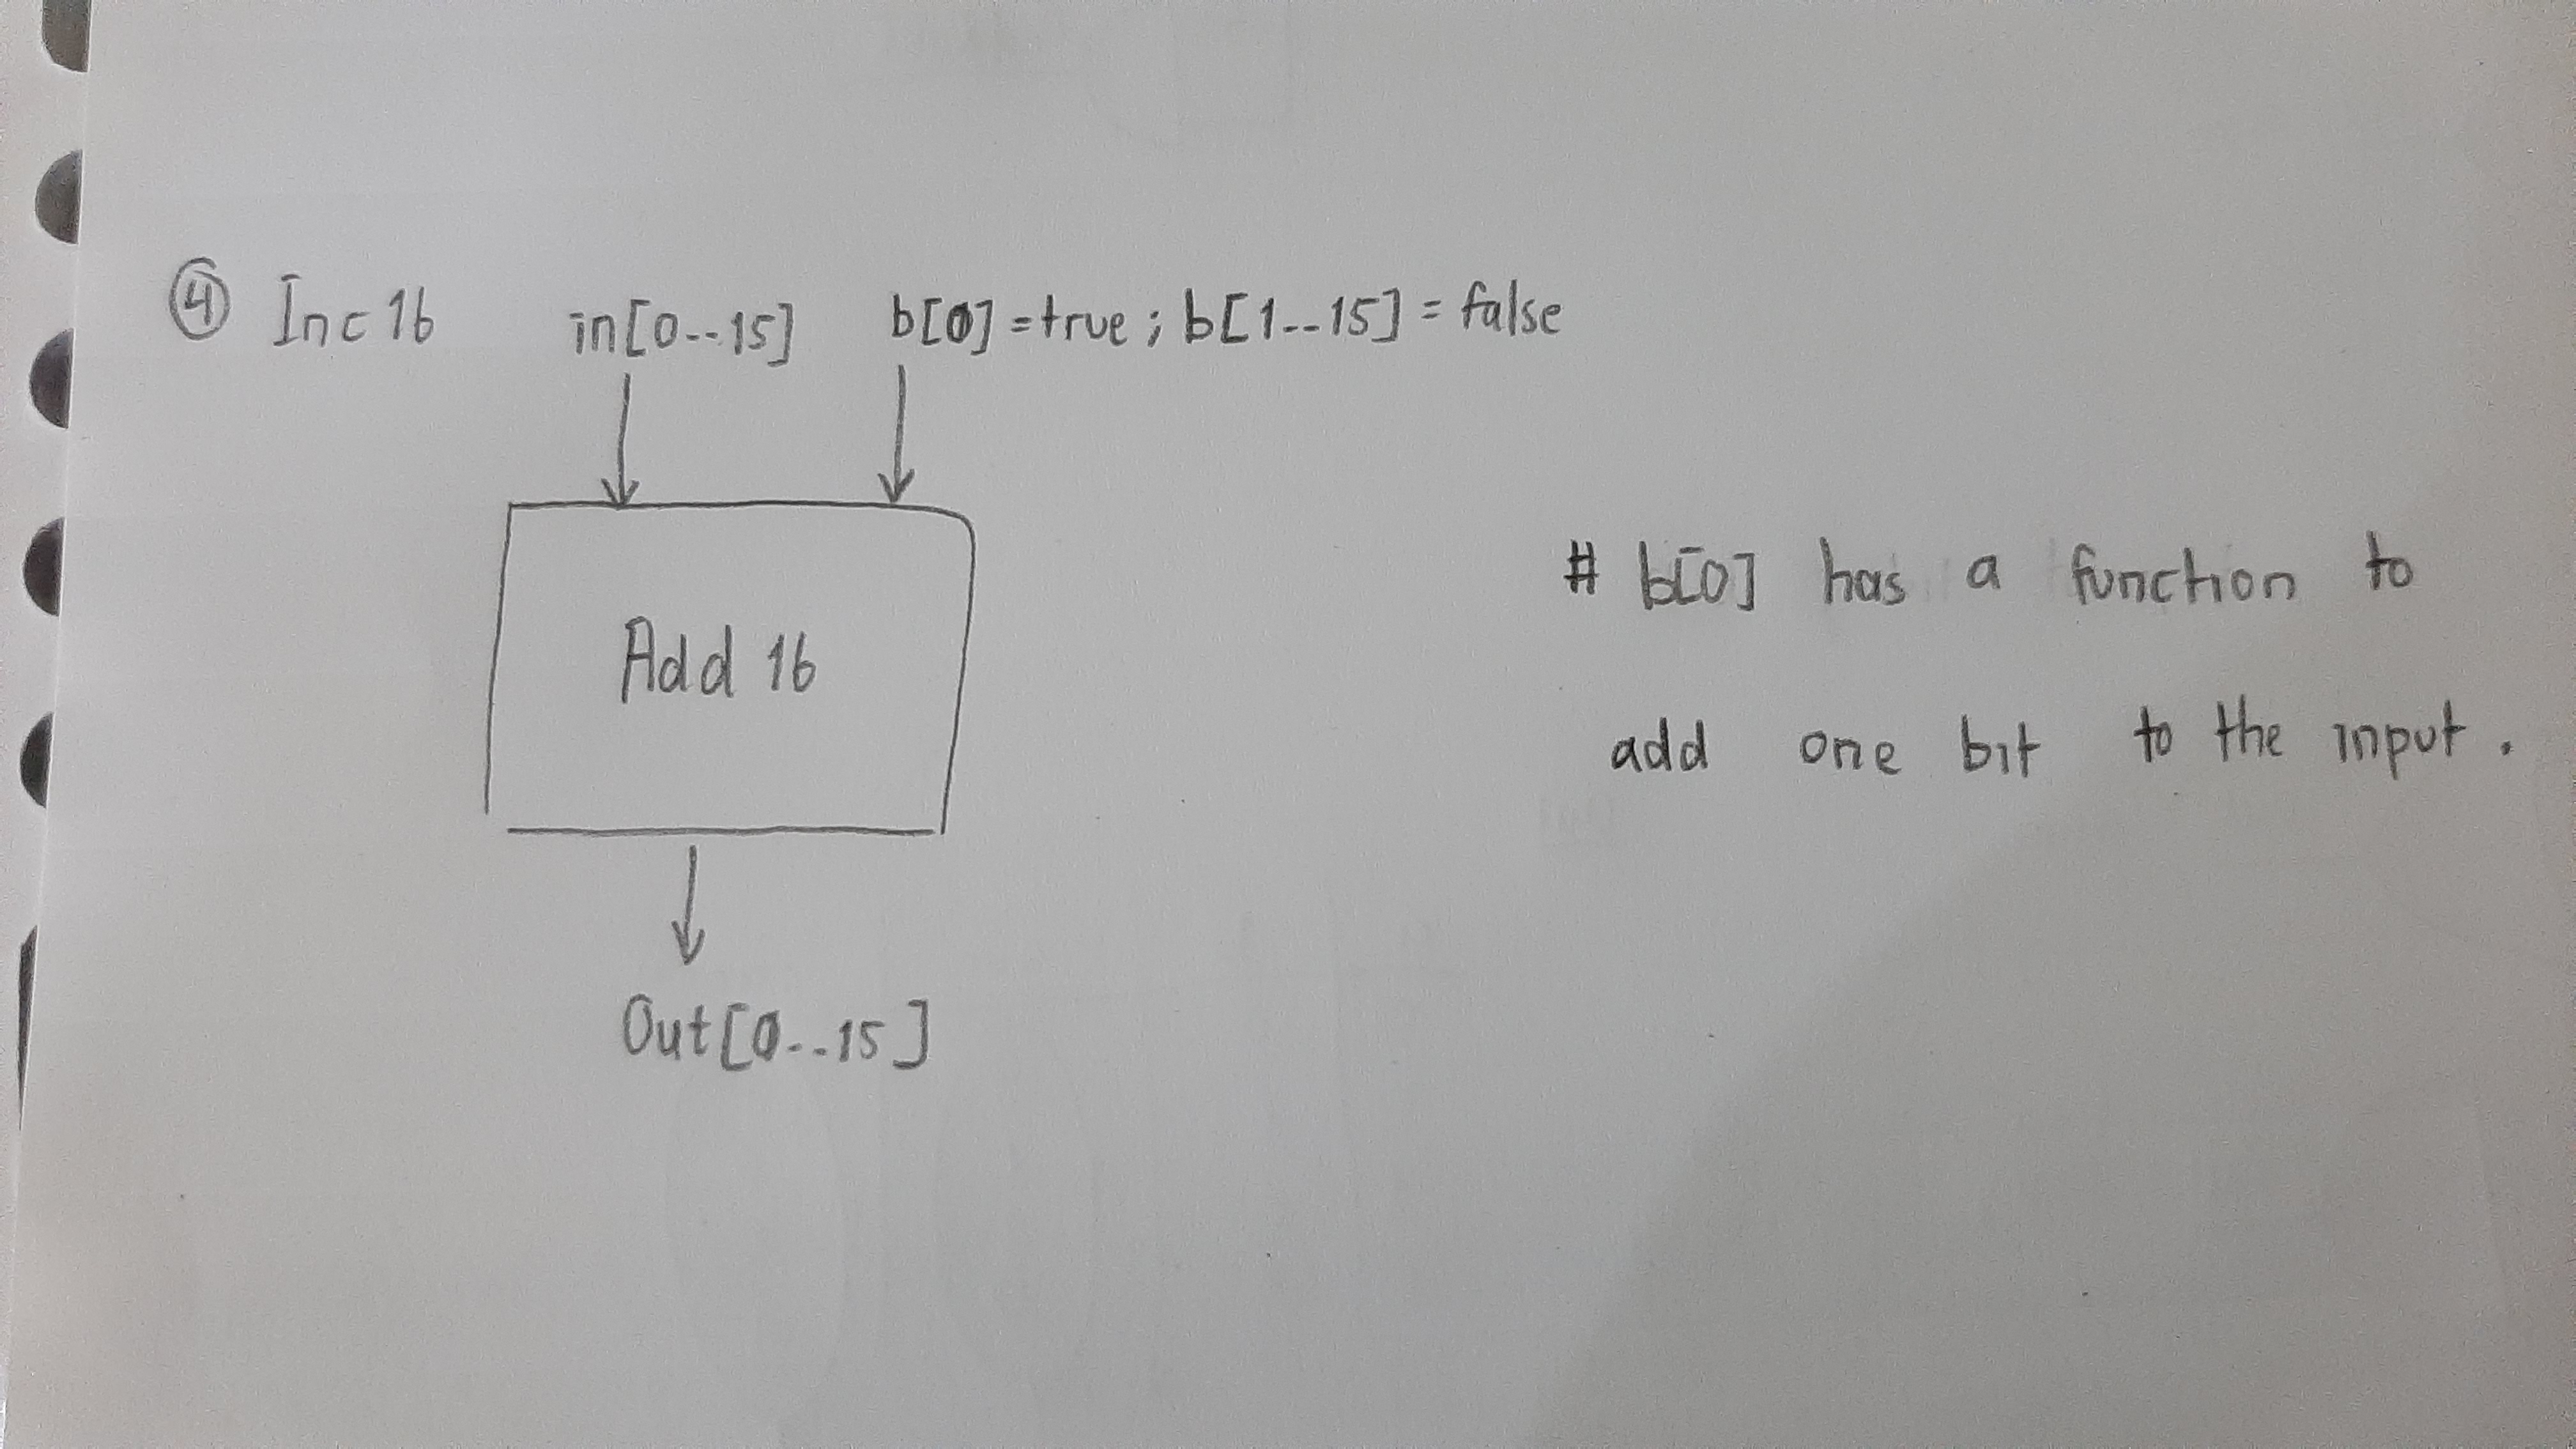 ④ Inc 16 in[0--15] b[0]=true; b[1--15]=false
Add 16
# b[0] has a function to
add one bit to the input.
Out[0--15]